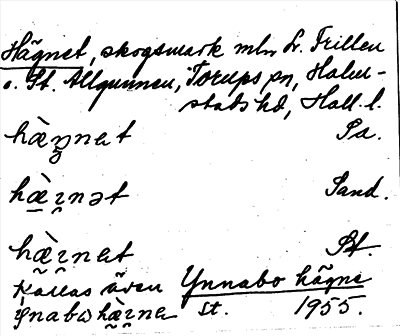 Hägnet, skogsmark mln L. Frillen
o. St. Allgunnen, Torups sn, Halm-
stads hd, Hall. l.
hæ̀ŋnet Pa.
hæ̀ɪnət Sand.
hæ̀ɪnet St.
Kallas även Ynnabo hägne
ynabo hæ̀ɪne St. 1955.